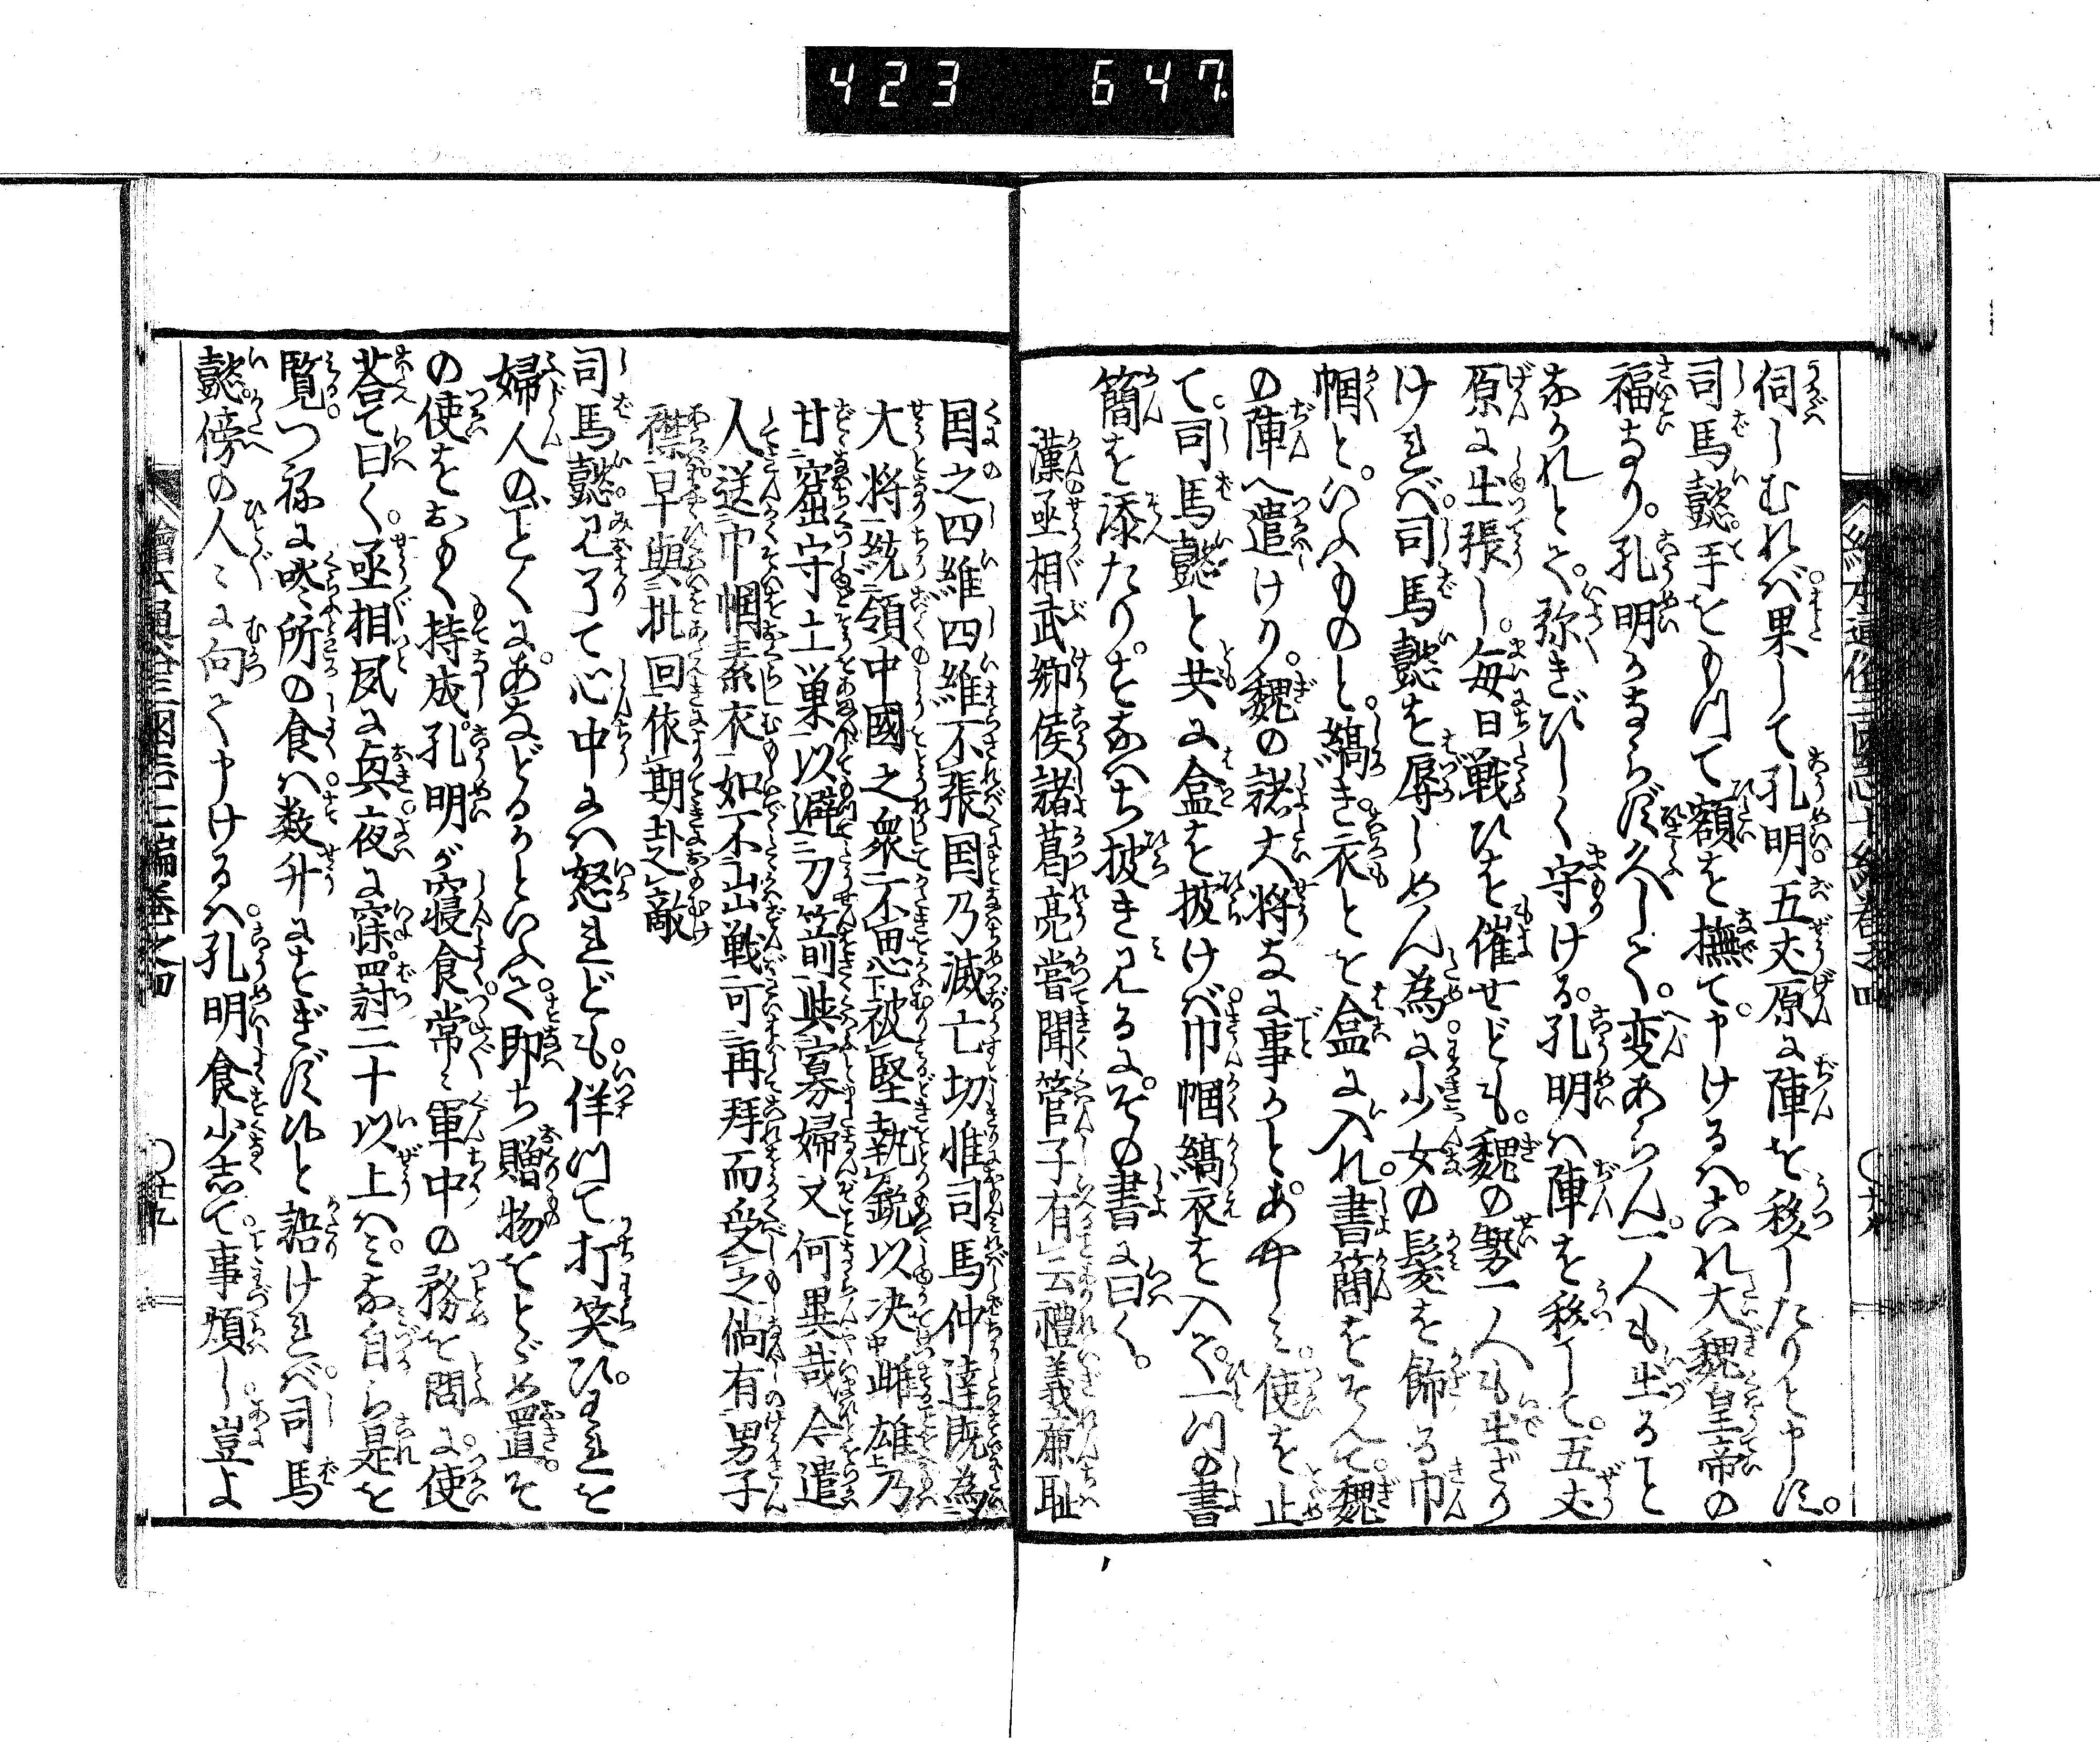 423 647
伺しむれバ。果して孔明。五丈原に陣を移したりと申す。
司馬懿。手をもつて額を撫て。申けるハ。これ大魏皇帝の
福なり。孔明かならず久しくて。変あらん。一人も出ること
なかれとて。弥きびしく守ける。孔明ハ陣を移して。五丈
原に出張し。毎日戦ひを催せども。魏の勢一人も出ざり
けれバ。司馬懿を辱しめん為に。少女の髪を飾る巾
幗と。いふものと。縞き衣とを盒に入れ。書簡をそへて。魏
の陣へ遣けり。魏の諸大将なに事かとあやしみ。使を止
て。司馬懿と共に盒を披けバ。巾幗縞衣を入て。一つの書
簡を添たり。すなハち披き見るに。その書に曰く。
漢丞相武郷侯諸葛亮嘗聞管子有云禮義廉耻
国之四維四維不張国乃滅亡切惟司馬仲達既為
大将統領中國之衆不思被堅執鋭以决雌雄乃
甘窟守土巣以避刀箭與寡婦又何異哉今遣
人送巾幗素衣如不出戦可再拜而受之倘有男子
襟早與批回依期赴敵
司馬懿見了て心中にハ怒れども。佯つて打笑ひ。われを
婦人のごとくに。あなどるかといふて。即ち贈物をとゞめ置。そ
の使をおもく持成。孔明が寝食。常々軍中の務を問に。使
荅て曰く。丞相夙に興。夜に寐。罸二十以上ハ。みな自ら是を
覧。つねに啖所の食ハ。数升にすぎずと語けれバ。司馬
懿。傍の人々に向て申けるハ。孔明食少して。事煩し。豈よ